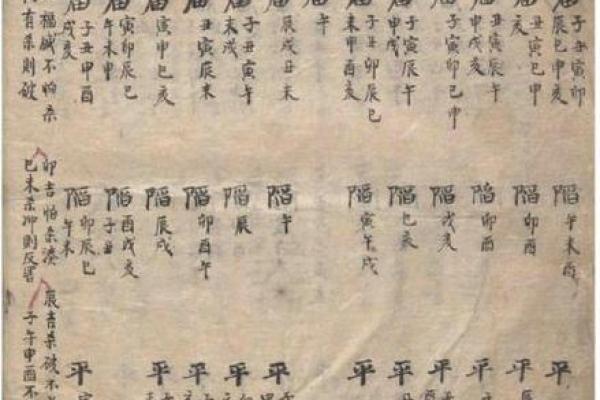 子丑寅卯
辰巳申亥
丑寅巳申
亥
丑寅辰午
申戌亥
子寅卯巳午
子寅辰午
申戌
子丑卯辰巳
未申酉亥
午
辰戌丑未
丑寅辰未
子丑寅午
未戌
寅申巳亥
寅卯辰巳
午未申
子丑申酉
戌亥
福減不怕杀
有杀則破
陷午未酉
陷卯酉
陷卯酉
陷戌亥
陷巳亥
陷寅午戌
陷午
陷辰
陷卯酉午
陷辰戌
陷酉戌亥
子丑
陷卯辰巳
午未
卯吉怕杀湊
巳未杀冲則反害
平
平
平
平
平
平
平
平
平
平
平
平
子午申酉不